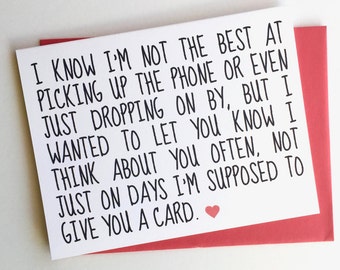 I KNOW I'M NOT THE BEST AT
PICKING UP THE PHONE OR EVEN
JUST DROPPING ON BY, BUT I
WANTED TO LET YOU KNOW I
THINK ABOUT YOU OFTEN, NOT
JUST ON DAYS I'M SUPPOSED TO
GIVE YOU A CARD.